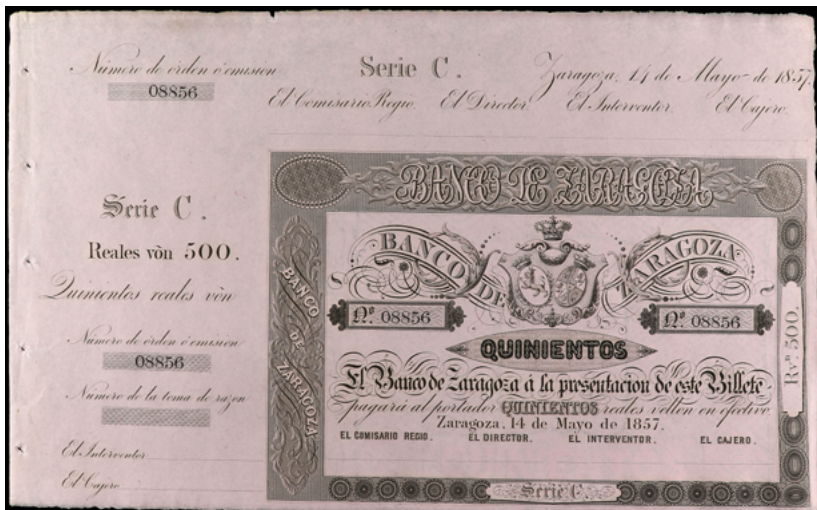 Número de órden ó emisión
08856
Serie C.
Zaragoza, 14 de Mayo de 1857.
El Comisario Regio. El Director. El Interventor. El Cajero.
Serie C.
Reales vòn 500.
Quinientos reales vòn
Número de órden ó emisión
08856
Número de la toma de razon
El Interventor
El Cajero
BANCO DE ZARAGOZA
BANCO DE ZARAGOZA
BANCO DE ZARAGOZA
Nº 08856
Nº 08856
QUINIENTOS
El Banco de Zaragoza á la presentacion de este Billete
pagará al portador QUINIENTOS reales vellon en efectivo
Zaragoza, 14 de Mayo de 1857.
EL COMISARIO REGIO. EL DIRECTOR. EL INTERVENTOR. EL CAJERO.
Rvn 500.
Serie C.